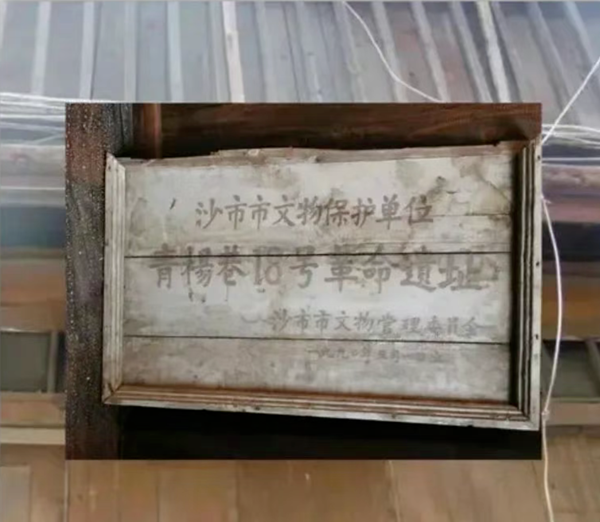 沙市市文物保护单位
青楊巷18号革命遺址
沙市市文物管理委員会
一九九〇年五月一四立